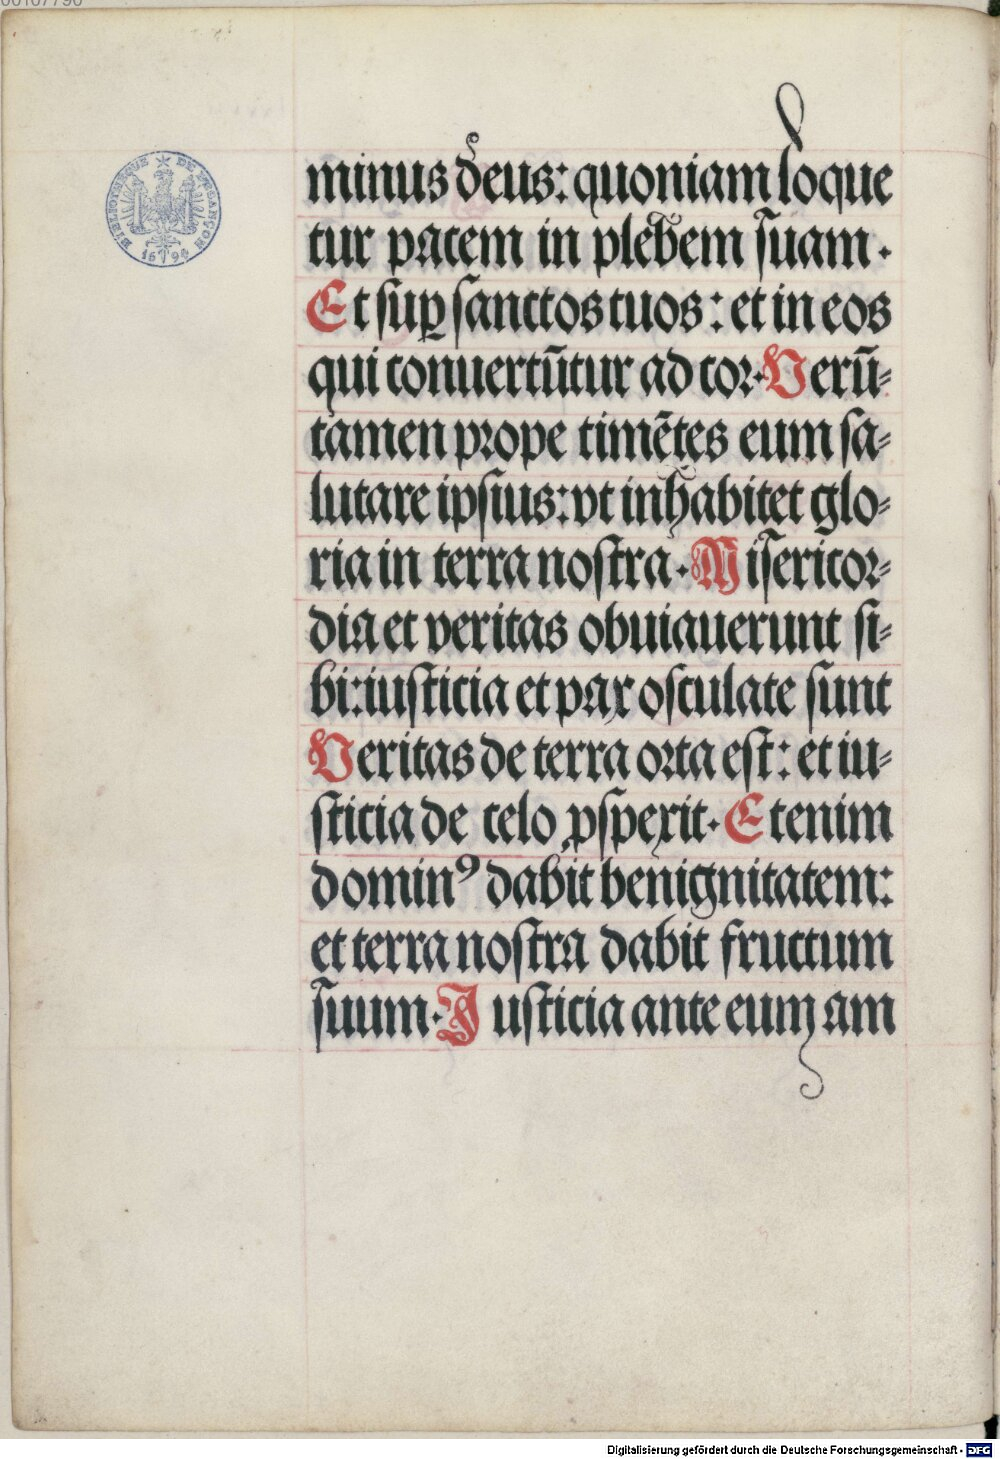 00107790
BIBLIOTHEQUE DE BESANÇON
1694
minus deus: quoniam loque
tur pacem in plebem suam.
Et suꝑ sanctos tuos: et in eos
qui conuertūtur ad cor. Verū-
tamen prope timētes eum sa-
lutare ipsius: vt inhabitet glo-
ria in terra nostra. Misericor-
dia et veritas obuiauerunt si-
bi: iusticia et pax osculate sunt
Veritas de terra orta est: et iu-
sticia de celo ꝓspexit. Etenim
dominꝰ dabit benignitatem:
et terra nostra dabit fructum
suum. Iusticia ante eum am
Digitalisierung gefördert durch die Deutsche Forschungsgemeinschaft - DFG